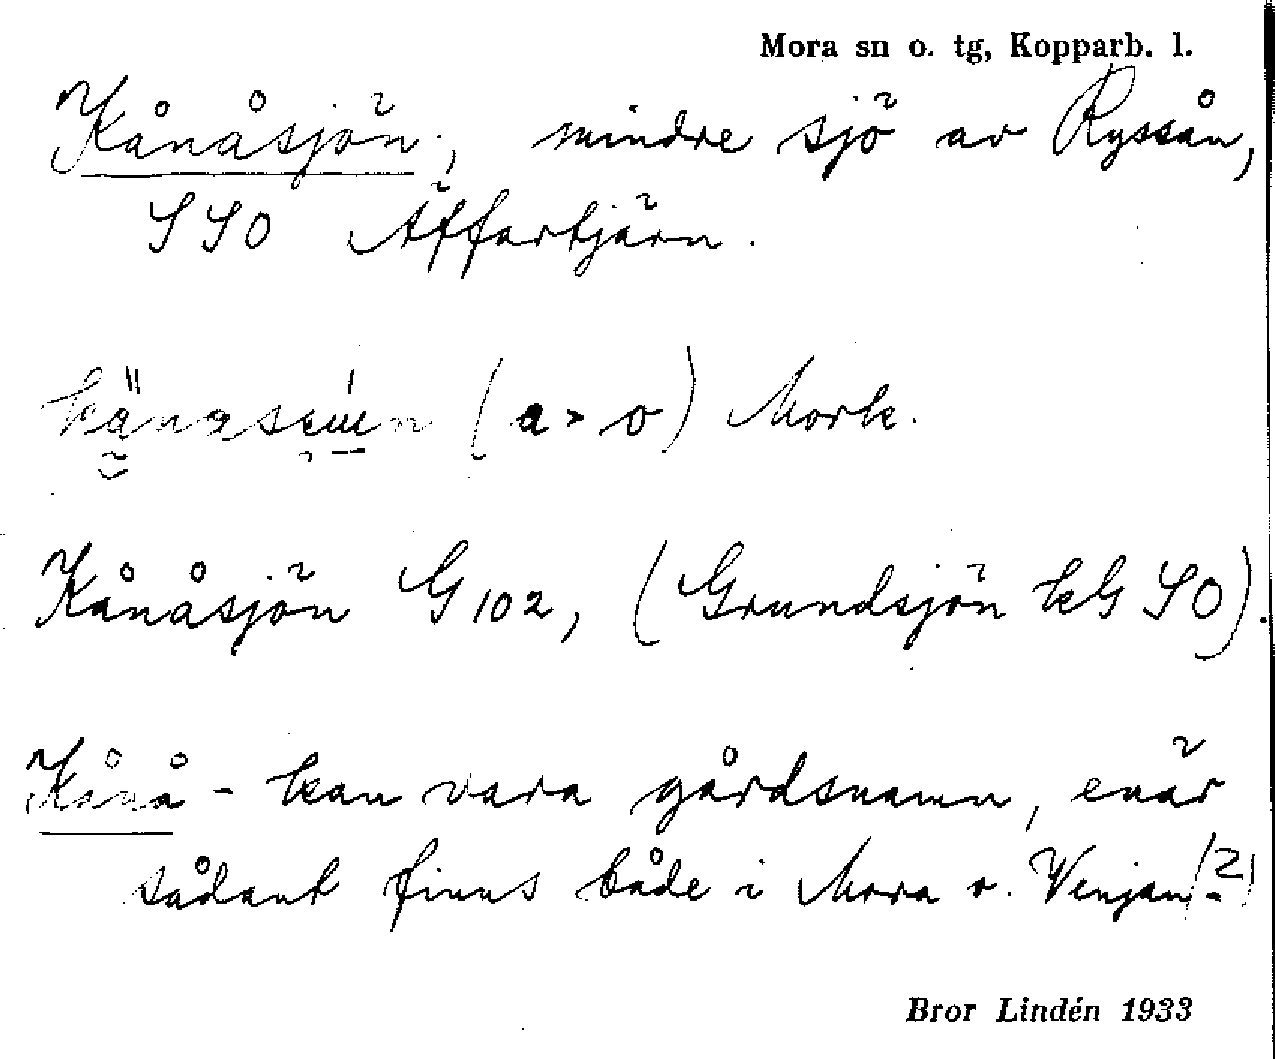 Mora sn o. tg, Kopparb. l.
Kånåsjön, mindre sjö av Ryssån,
SSO Äffartjärn.
(a > o) Mork.
Kånåsjön G 102, (Grundsjön kG SO).
Kånå- kan vara gårdsnamn, enär
sådant finns både i Mora o. Venjan
Bror Lindén 1933